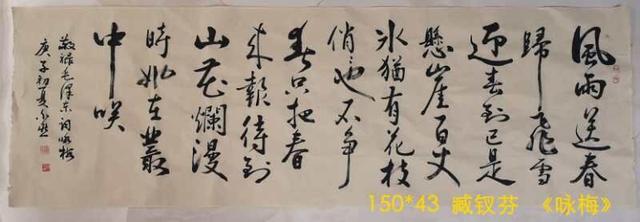 風雨送春
歸飛雪
迎春到已是
懸崖百丈
冰猶有花枝
俏也不争
春只把春
来報待到
山花爛漫
時她在叢
中咲
敬録毛澤東詞咏梅
庚子初夏
150*43 臧钗芬 《咏梅》